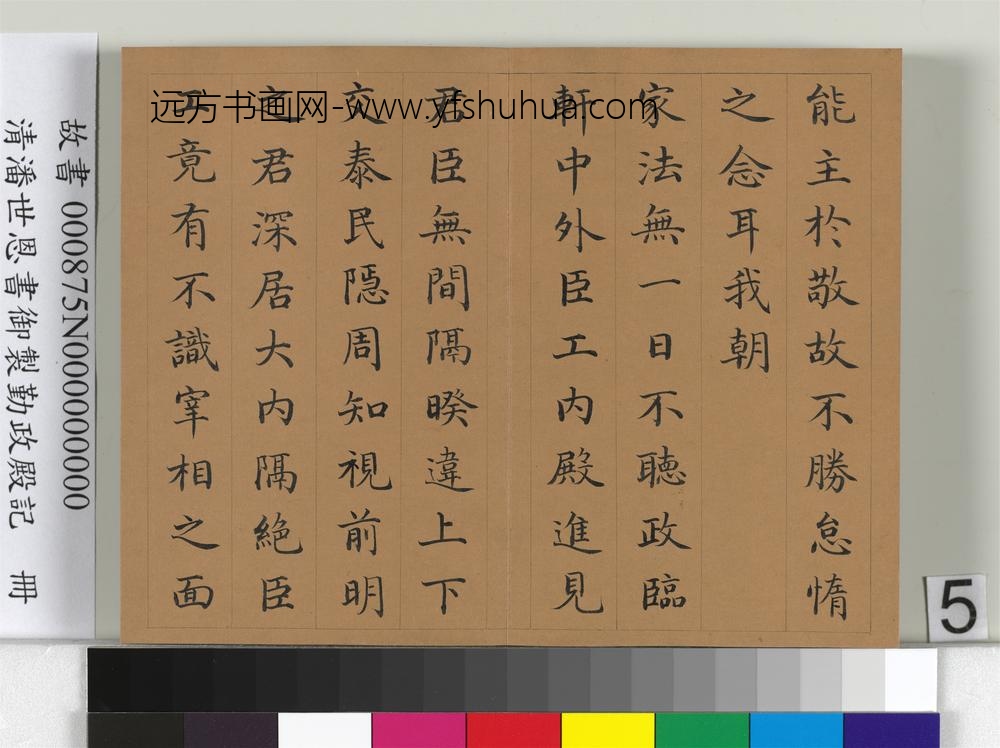 能主於敬故不勝怠惰
之念耳我朝
家法無一日不聽政臨
軒中外臣工內殿進見
君臣無間隔暌違上下
交泰民隱周知視前明
之君深居大內隔絕臣
工竟有不識宰相之面
远方书画网-www.yfshuhua.com
故書 000875N000000000
清潘世恩書御製勤政殿記 冊
5